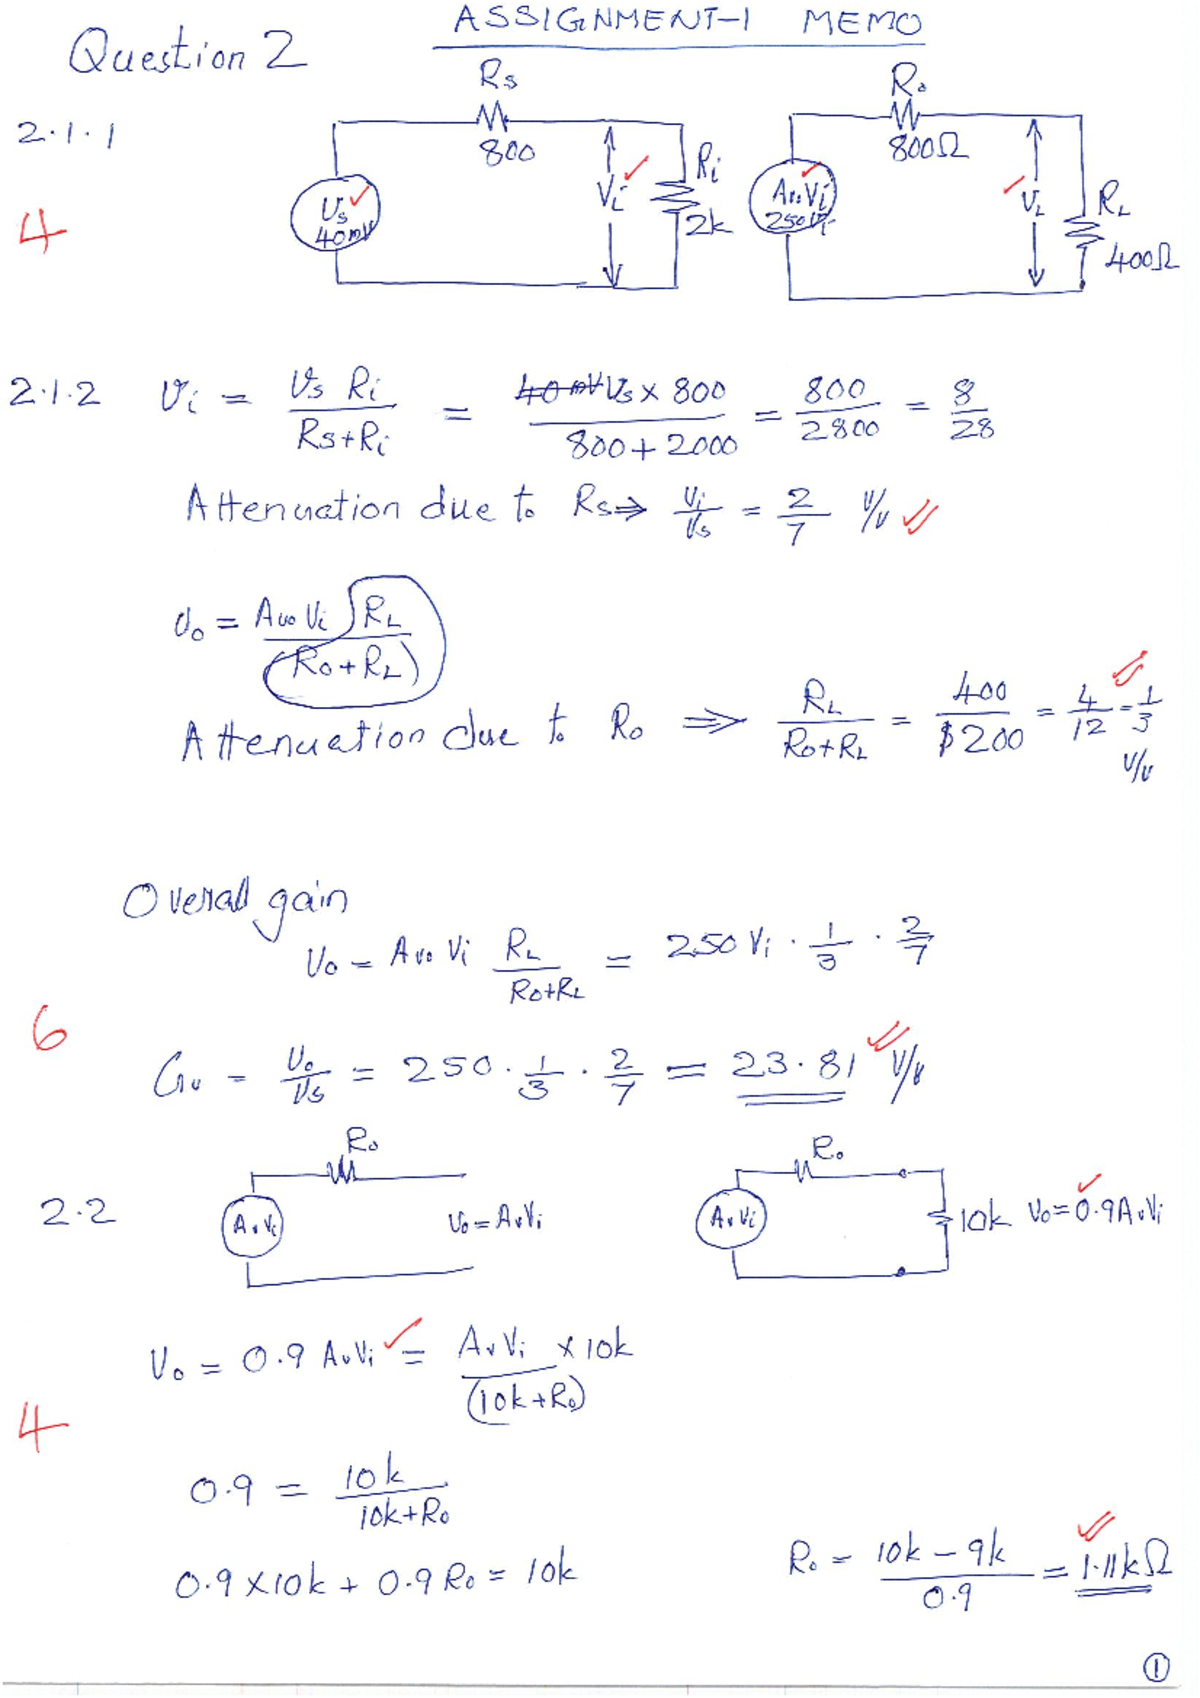 ASSIGNMENT-1 MEMO
Question 2
2.1.1
Rs
800
Vs
40mV
Vi
Ri
2k
Ro
800Ω
Avo Vi
250Vi
VL
RL
400Ω
4
2.1.2 Vi = Vs Ri / (Rs+Ri) = 40mV Vs x 800 / (800+2000) = 800/2800 = 8/28
Attenuation due to Rs ⇒ Vi/Vs = 2/7 V/V
Vo = Avo Vi RL / (Ro+RL)
Attenuation due to Ro ⇒ RL / (Ro+RL) = 400/$200 = 4/12 = 1/3 V/V
Overall gain
Vo = Avo Vi RL / (Ro+RL) = 250 Vi · 1/3 · 2/7
6
Gv = Vo/Vs = 250 · 1/3 · 2/7 = 23.81 V/V
2.2
Ro
AvVi
Vo = AvVi
Ro
AvVi
10k Vo = 0.9AvVi
Vo = 0.9 AvVi = AvVi x 10k / (10k+Ro)
4
0.9 = 10k / (10k+Ro)
0.9 x 10k + 0.9 Ro = 10k
Ro = (10k - 9k) / 0.9 = 1.11kΩ
1